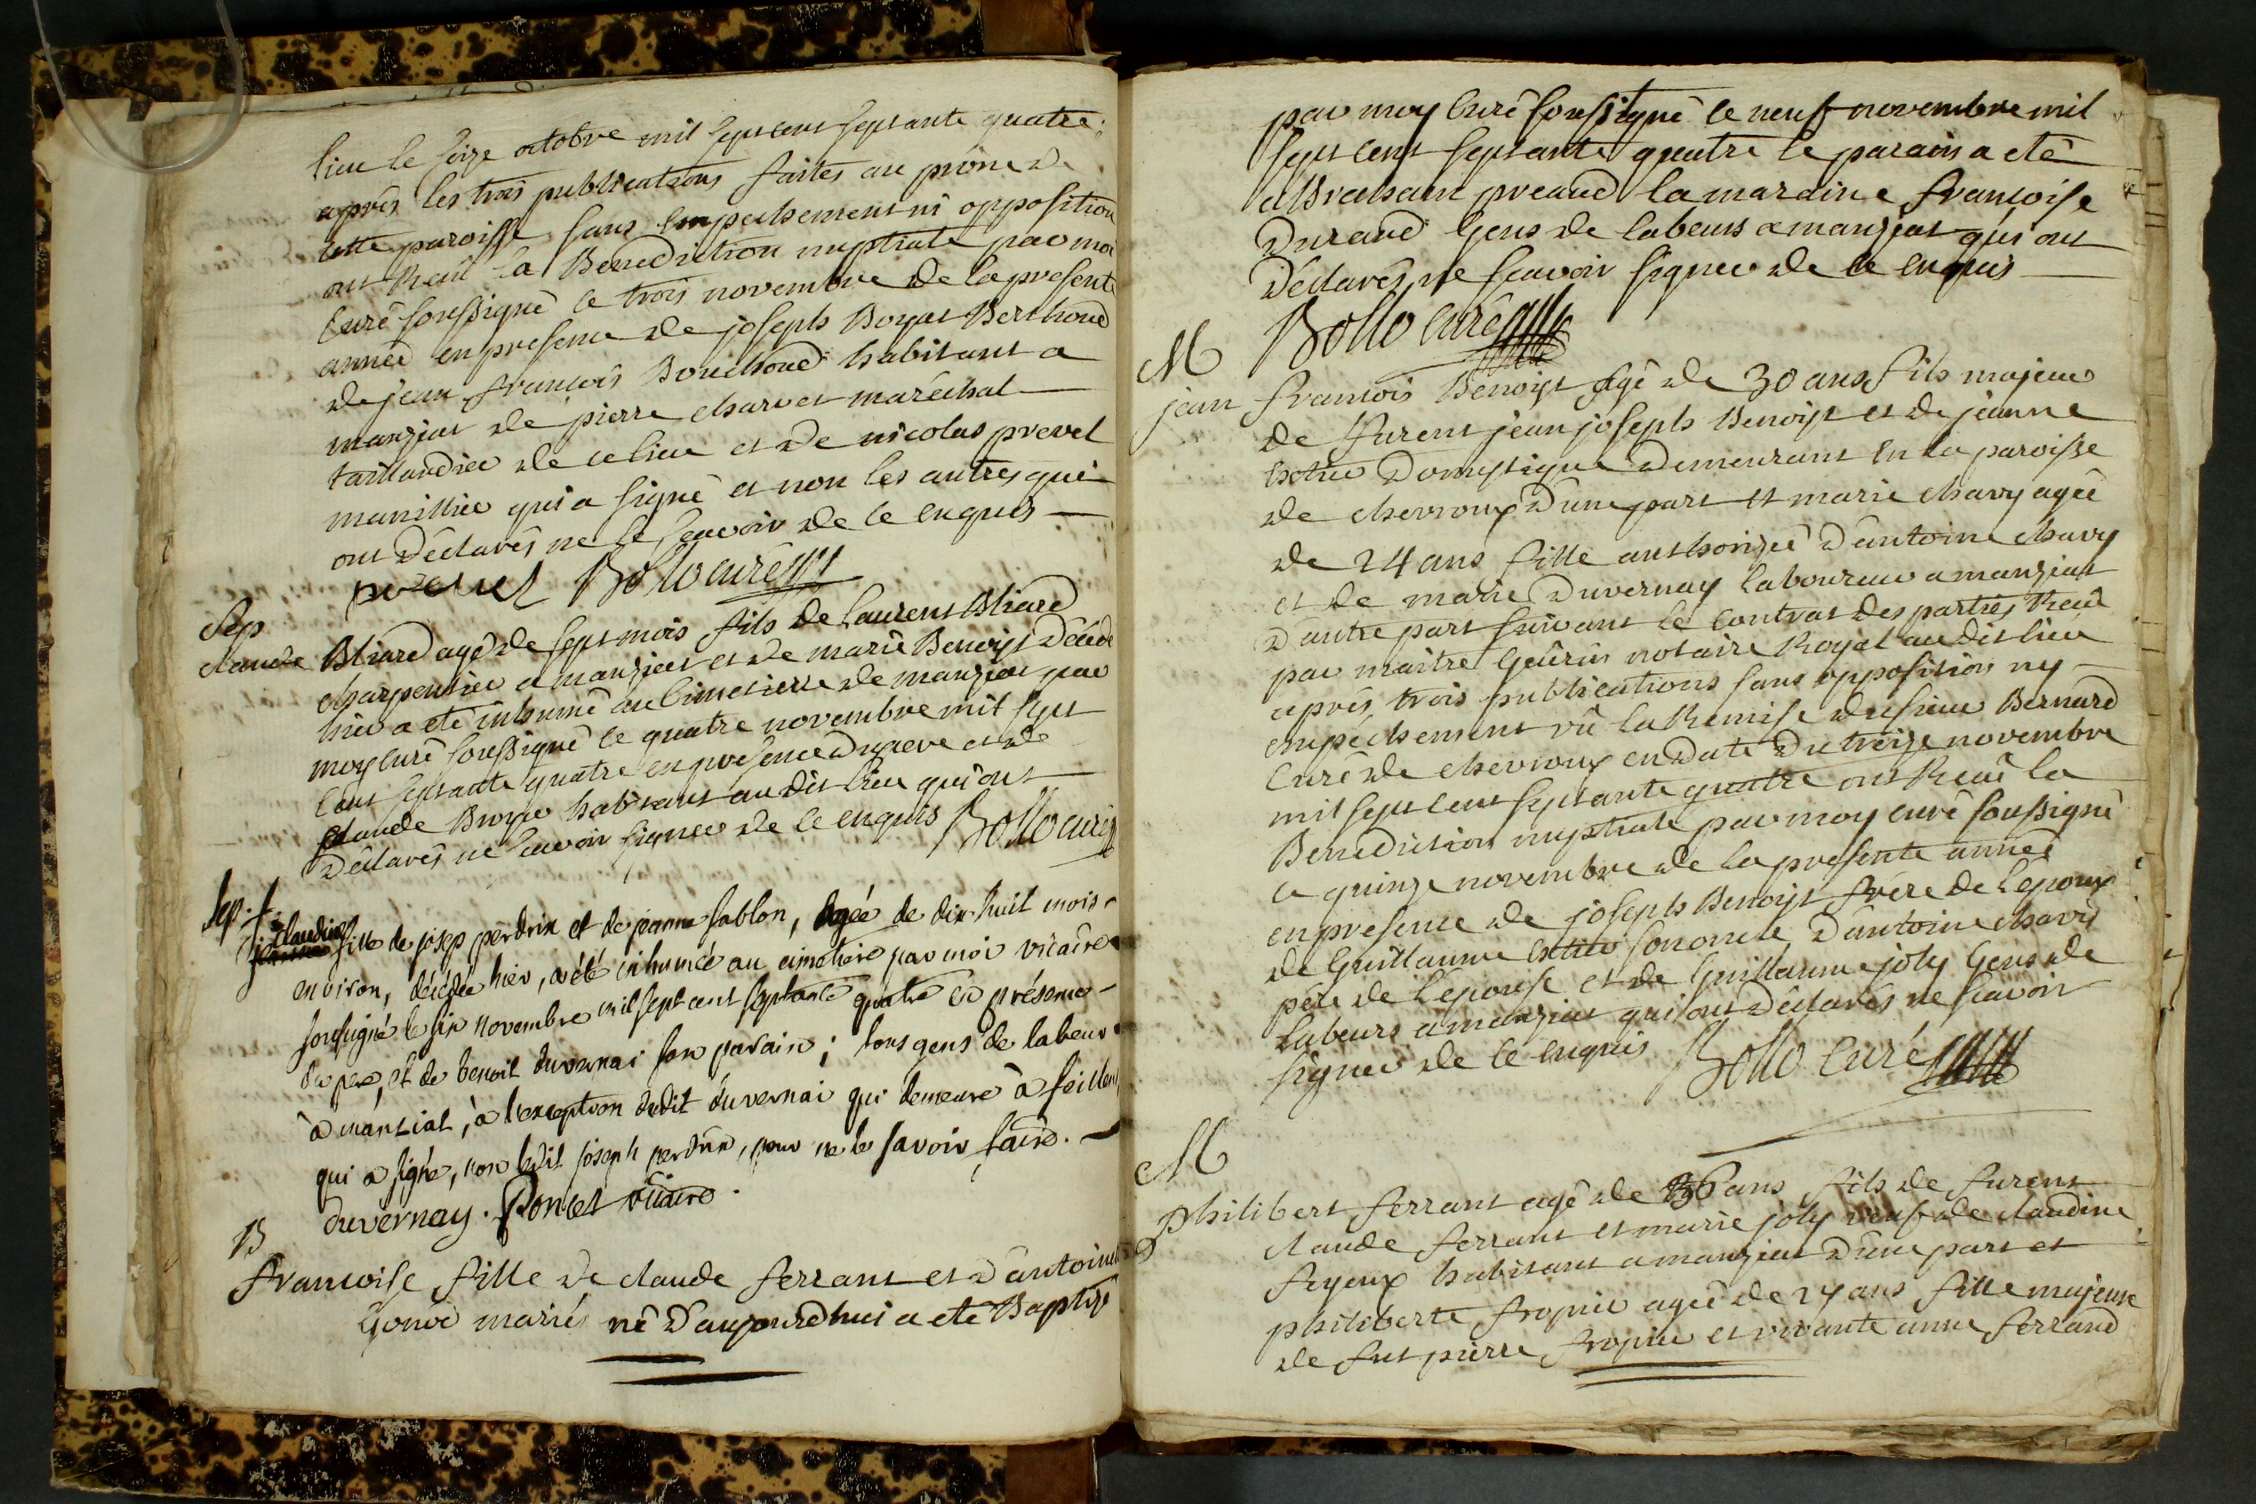 lieu le seize octobre mil sept cent septante quatre;
après les trois publications faites au prône de
cette paroisse sans empechement ni opposition
ont Recû la Benediction nuptiale par moi
curé soussigné le trois novembre de la presente
année en presence de joseph Boyat Berthoud
de jean françois Bouchoud habitant a
manziat de pierre charvet maréchal
taillandier de ce lieu et de nicolas prevel
manillier qui a signé et non les autres qui
ont déclarés ne le scavoir de ce enquis
prevel Bollo curé
Sep
claude Bliard agé de sept mois fils de laurent Bliard
charpentier a manziat et de marie Benoist décédé
hier a eté inhumé au cimetierre de manziat par
moy curé soussigné le quatre novembre mil sept
cent septante quatre en presence du pere et de
claude Broyer habitant au dit lieu qui ont
déclarés ne scavoir signer de ce enquis Bollo curé
sep. f.
claudine
jeanne fille de josep perdrix et de jeanne sablon, agée de dix huit mois
environ, décédée hier, a été inhumée au cimetiere par moi vicaire
soussigné le six novembre mil sept cent septante quatre en présence
du pere, et de benoit duvernai son parain; tous gens de labeur
à manziat, à l'exception dudit duvernai qui demeure à feillens
qui a signé, non ledit joseph perdrix, pour ne le savoir faire.
duvernay. Poncet vicaire.
B
francoise fille de claude ferrant et d'antoinette
Gonod mariés né d'aujourd'hui a eté Baptisé
par moy curé soussigné le neuf novembre mil
sept cent septante quatre le parain a eté
Abraham preaud la maraine francoise
Durand gens de labeurs a manziat qui ont
déclarés ne scavoir signer de ce enquis
Bollo curé
M
jean francois Benoist agé de 30 ans fils majeur
de furent jean joseph Benoist et de jeanne
domestique demeurant en la paroisse
de chevroux d'une part et marie chavy agée
de 24 ans fille authorizée d'antoine chavy
et de marie Duvernay laboureur a manziat
d'autre part suivant le contrat des parties Recû
par maitre Guerin notaire Royal au dit lieu
après trois publications sans opposition ny
empéchement vû la Remise du sieur Bernard
curé de chevroux en date du treize novembre
mil sept cent septante quatre ont Recû la
Benediction nuptiale par moy curé soussigné
le quinze novembre de la presente année
en presence de joseph Benoist frére de l'epoux
de Guillaume son oncle d'antoine chavy
père de l'épouse et de Guillaume joly gens de
labeurs a manziat qui ont déclarés ne scavoir
signer de ce enquis Bollo curé
M
philibert ferrant agé de 36 ans fils de furent
claude ferrant et marie joly veuf de claudine
feyeux habitant a manziat d'une part et
philiberte fropier agée de 24 ans fille majeure
de fut pierre fropier et vivante anne ferrand